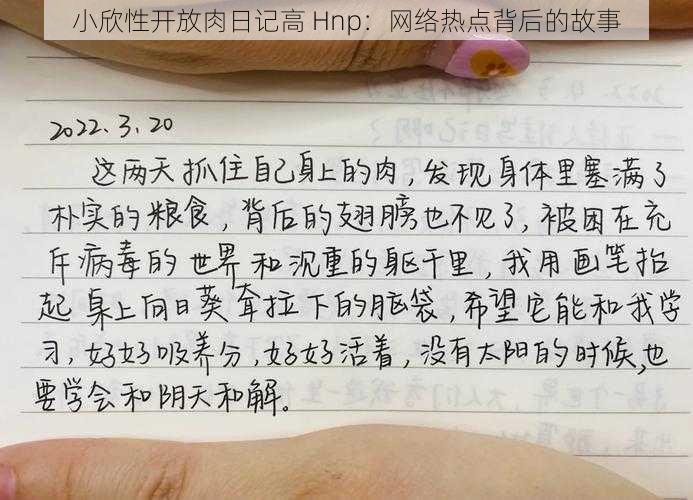 小欣性开放肉日记高 Hnp：网络热点背后的故事
2022.3.20
这两天抓住自己身上的肉，发现身体里塞满了
朴实的粮食，背后的翅膀也不见了，被困在充
斥病毒的世界和沉重的躯干里，我用画笔抬
起桌上向日葵耷拉下的脑袋，希望它能和我学
习，好好吸养分，好好活着，没有太阳的时候，也
要学会和阴天和解。